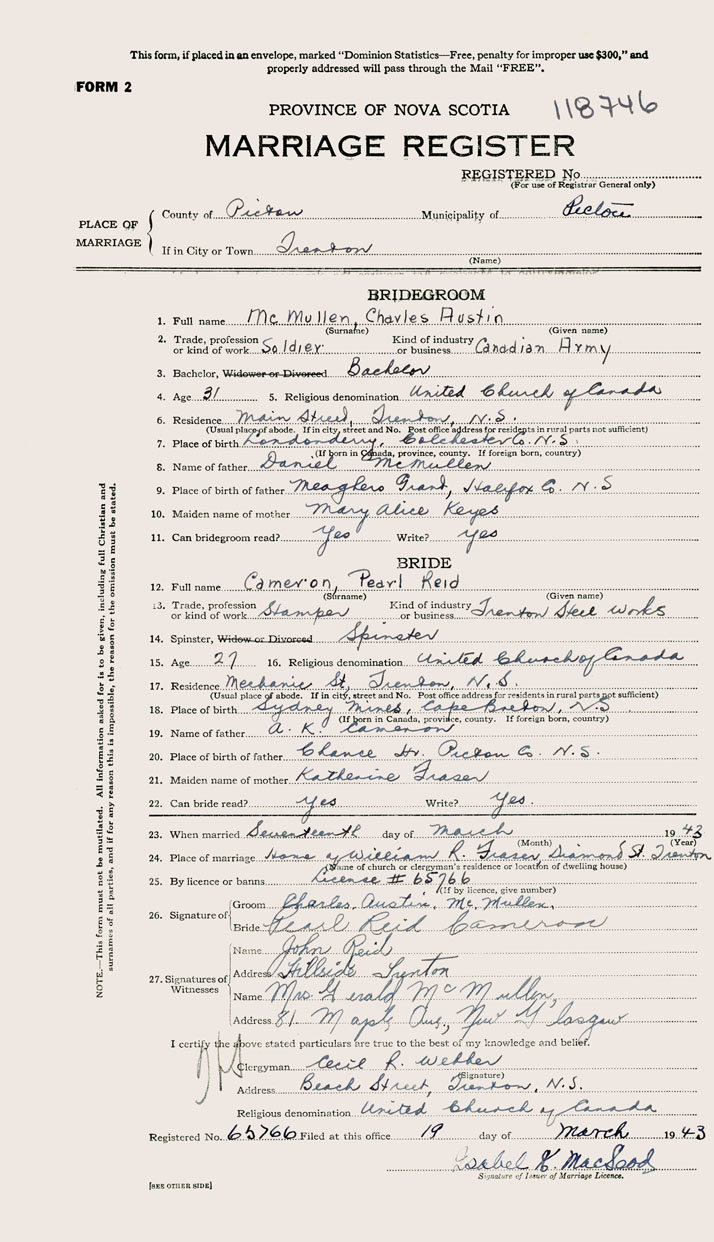 This form, if placed in an envelope, marked "Dominion Statistics—Free, penalty for improper use $300," and
properly addressed will pass through the Mail "FREE".
FORM 2
PROVINCE OF NOVA SCOTIA 118746
MARRIAGE REGISTER
REGISTERED No.
(For use of Registrar General only)
PLACE OF MARRIAGE
County of Pictou Municipality of Pictou
If in City or Town Trenton
(Name)
BRIDEGROOM
1. Full name Mc Mullen, Charles Austin
(Surname) (Given name)
2. Trade, profession or kind of work Soldier Kind of industry or business Canadian Army
3. Bachelor, Widower or Divorced Bachelor
4. Age 31 5. Religious denomination United Church of Canada
6. Residence Main Street, Trenton, N.S.
(Usual place of abode. If in city, street and No. Post office address for residents in rural parts not sufficient)
7. Place of birth Londonderry, Colchester Co. N.S.
(If born in Canada, province, county. If foreign born, country)
8. Name of father Daniel McMullen
9. Place of birth of father Meaghers Grant, Halifax Co. N.S
10. Maiden name of mother Mary Alice Keyes
11. Can bridegroom read? Yes Write? Yes
BRIDE
12. Full name Cameron, Pearl Reid
(Surname) (Given name)
13. Trade, profession or kind of work Stamper Kind of industry or business Trenton Steel Works
14. Spinster, Widow or Divorced Spinster
15. Age 27 16. Religious denomination United Church of Canada
17. Residence Mechanic St, Trenton, N.S.
(Usual place of abode. If in city, street and No. Post office address for residents in rural parts not sufficient)
18. Place of birth Sydney Mines, Cape Breton, N.S
(If born in Canada, province, county. If foreign born, country)
19. Name of father A. K. Cameron
20. Place of birth of father Chance Hr. Pictou Co. N.S.
21. Maiden name of mother Katherine Fraser
22. Can bride read? Yes Write? Yes.
23. When married Seventeenth day of March 1943
(Month) (Year)
24. Place of marriage Home of William R. Fraser, Diamond St. Trenton
(Name of church or clergyman's residence or location of dwelling house)
25. By licence or banns License # 65766
(If by licence, give number)
26. Signature of
Groom Charles Austin Mc Mullen,
Bride Pearl Reid Cameron
27. Signatures of Witnesses
Name John Reid
Address Hillside Trenton
Name Mrs Gerald McMullen,
Address 81 Maple Ave, New Glasgow
I certify the above stated particulars are true to the best of my knowledge and belief.
Clergyman Cecil R. Webber
(Signature)
Address Beach Street, Trenton, N.S.
Religious denomination United Church of Canada
Registered No. 65766 Filed at this office 19 day of March 1943
Isabel K. MacLeod
Signature of Issuer of Marriage Licence.
[SEE OTHER SIDE]
NOTE.—This form must not be mutilated. All information asked for is to be given, including full Christian and
surnames of all parties, and if for any reason this is impossible, the reason for the omission must be stated.